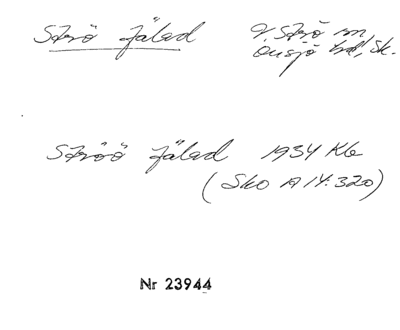 Strö fälad V. Strö sn,
Onsjö hd, Sk.
Ströö fälad 1934 Kb
(Sko A 14:320)
Nr 23944